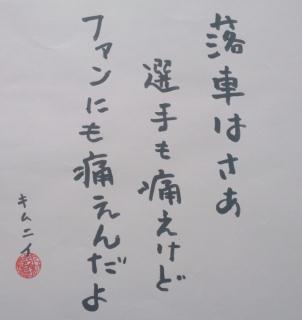 落車はさあ
選手も痛えけど
ファンにも痛えんだよ
キムニイ